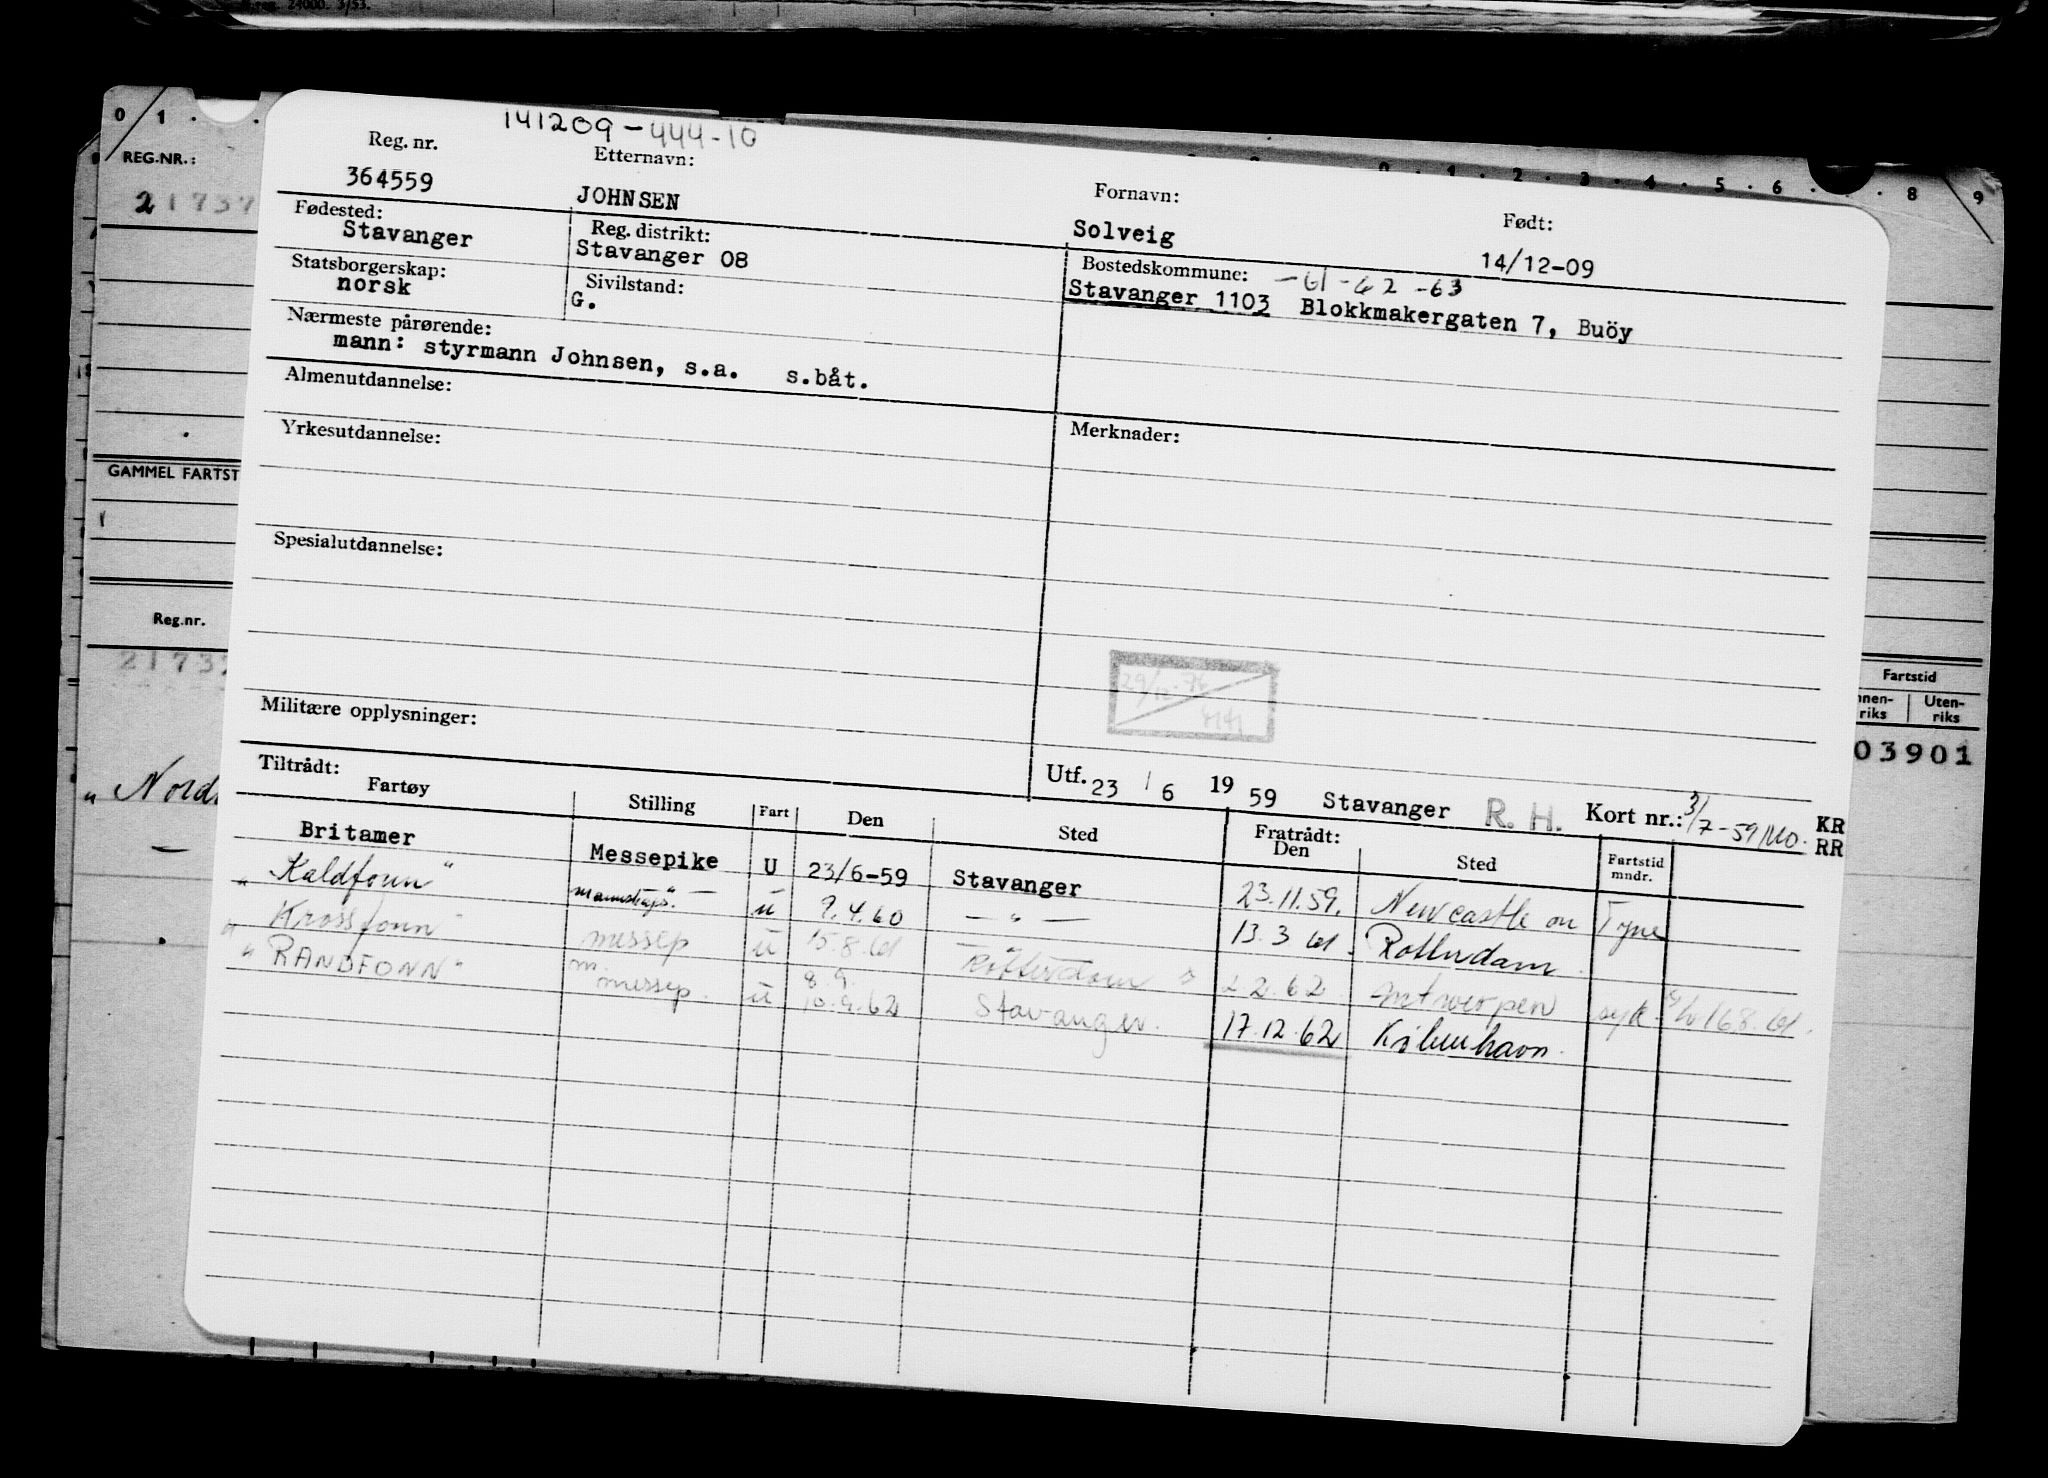 24000. 3/53.
0 1 . .
0 . 1 . 2 . 3 . 4 . 5 . 6 . . 8 9
REG.NR.:
21737
GAMMEL FARTST
Reg.nr.
2173
„ Nord
Fartstid
nnen-
riks
Uten-
riks
03901
141209-444-10
Reg. nr.
364559
Etternavn:
JOHNSEN
Fornavn:
Solveig
Født:
14/12-09
Fødested:
Stavanger
Reg. distrikt:
Stavanger 08
Bostedskommune: -61-62-63
Stavanger 1103 Blokkmakergaten 7, Buöy
Statsborgerskap:
norsk
Sivilstand:
G.
Nærmeste pårørende:
mann: styrmann Johnsen, s.a. s.båt.
Almenutdannelse:
Yrkesutdannelse:
Merknader:
Spesialutdannelse:
29/12-76
Militære opplysninger:
Utf. 23 / 6 19 59 Stavanger R. H. Kort nr.: 3/7-59 MO. KR
RR
Tiltrådt:
Fartøy Stilling Fart Den Sted Fratrådt:
Den Sted Fartstid
mndr.
Britamer Messepike U 23/6-59 Stavanger 23.11.59. Newcastle on Tyne
„ Kaldfonn " — " — u 9.4.60 — " — 13.3 61. Rotterdam
„ Krossfonn " messep u 15.8.61 Rotterdam 2 2.62 Antwerpen syk
„ RANDFONN " m. messep. u 8.9. 10.9.62 Stavanger. 17.12.62 København.